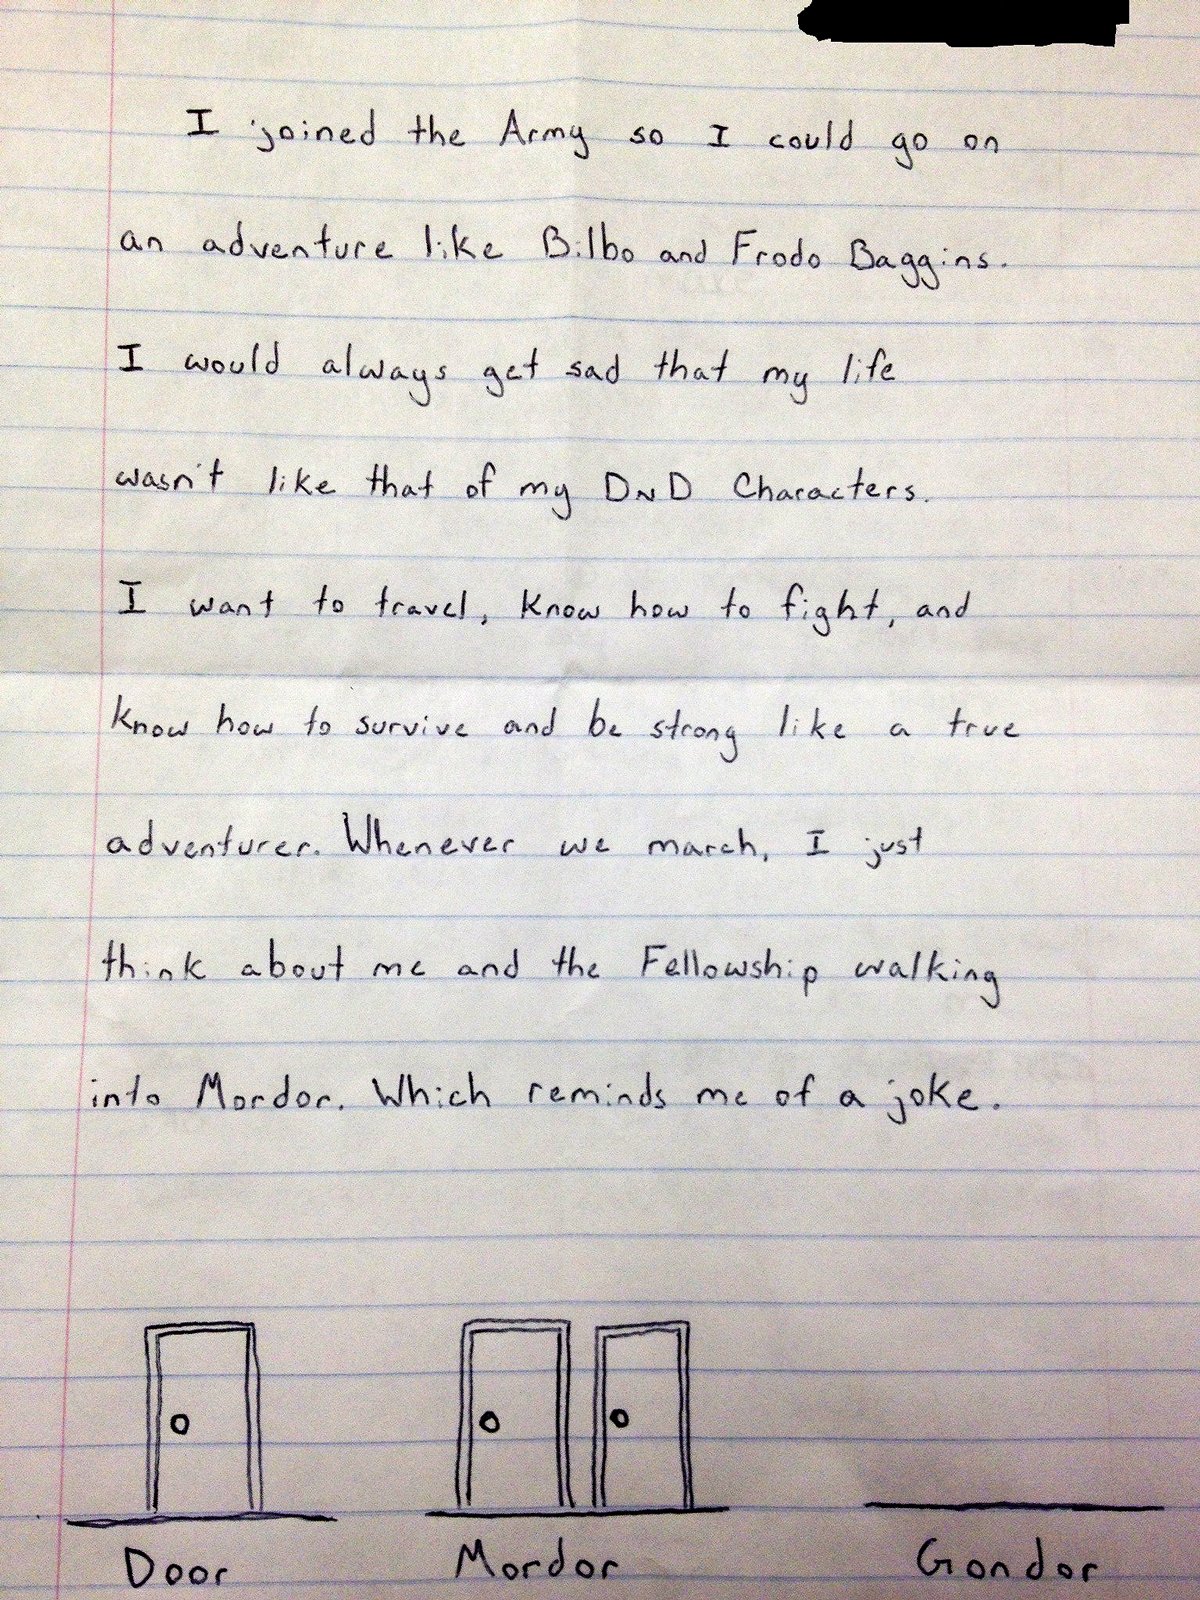 I joined the Army so I could go on
an adventure like Bilbo and Frodo Baggins.
I would always get sad that my life
wasn't like that of my DND Characters.
I want to travel, know how to fight, and
know how to survive and be strong like a true
adventurer. Whenever we march, I just
think about me and the Fellowship walking
into Mordor. Which reminds me of a joke.
Door Mordor Gondor